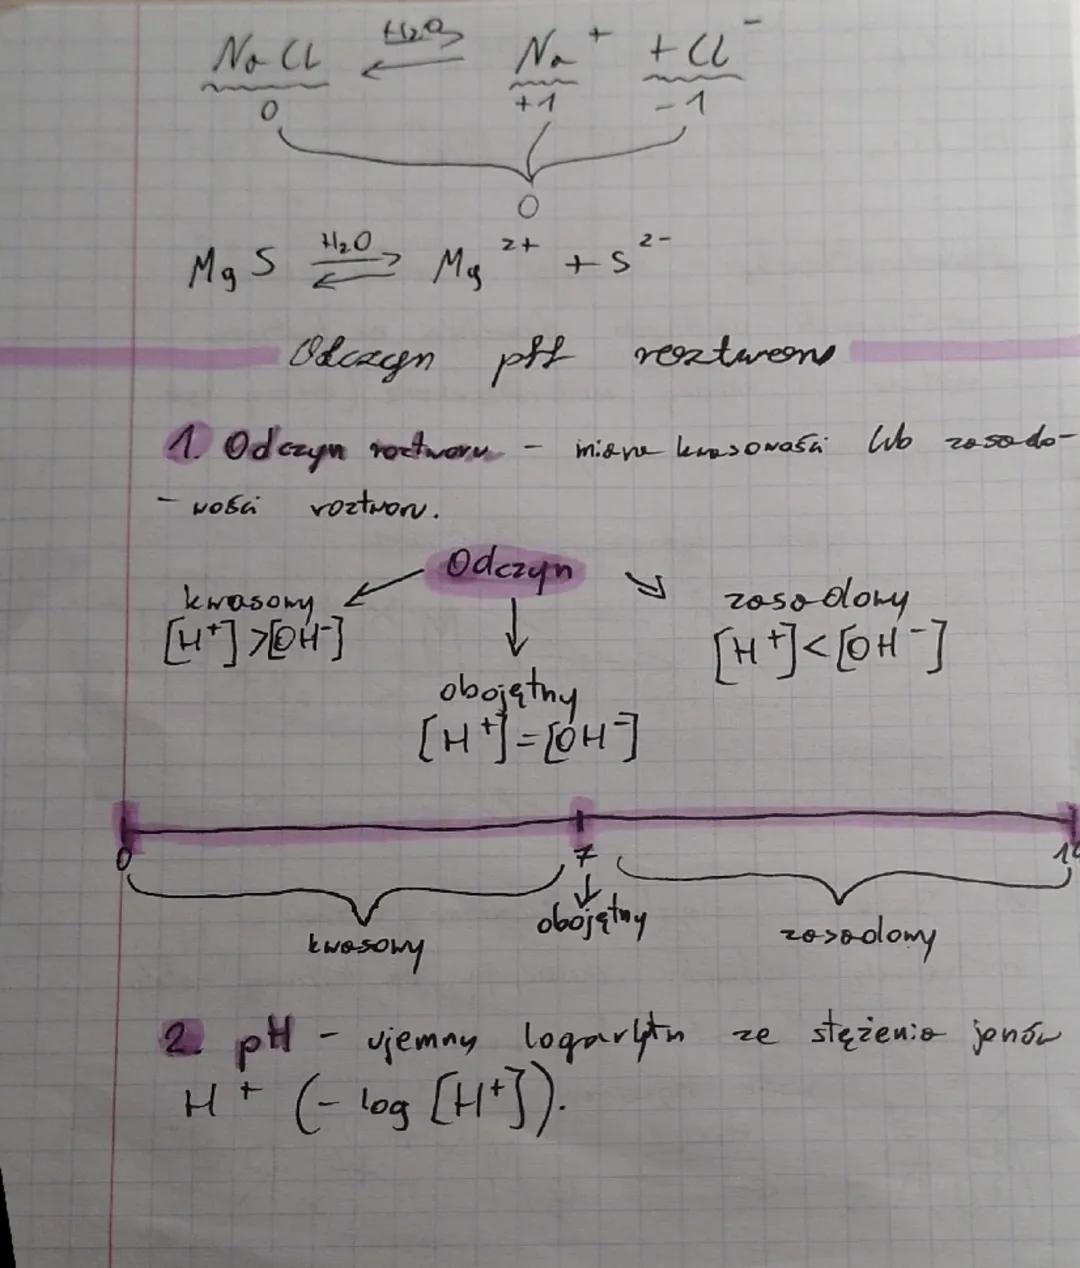 NaCl ⇌ H₂O Na⁺ + Cl⁻
0 +1 -1
0
MgS ⇌ H₂O Mg²⁺ + S²⁻
Odczyn pH roztworu
1. Odczyn roztworu - miara kwasowości lub zasado-
- wości roztworu.
Odczyn
kwasowy zasadowy
[H⁺]>[OH⁻] [H⁺]<[OH⁻]
obojętny
[H⁺]=[OH⁻]
0 7 14
kwasowy obojętny zasadowy
2. pH - ujemny logarytm ze stężenia jonów
H⁺ (-log [H⁺]).